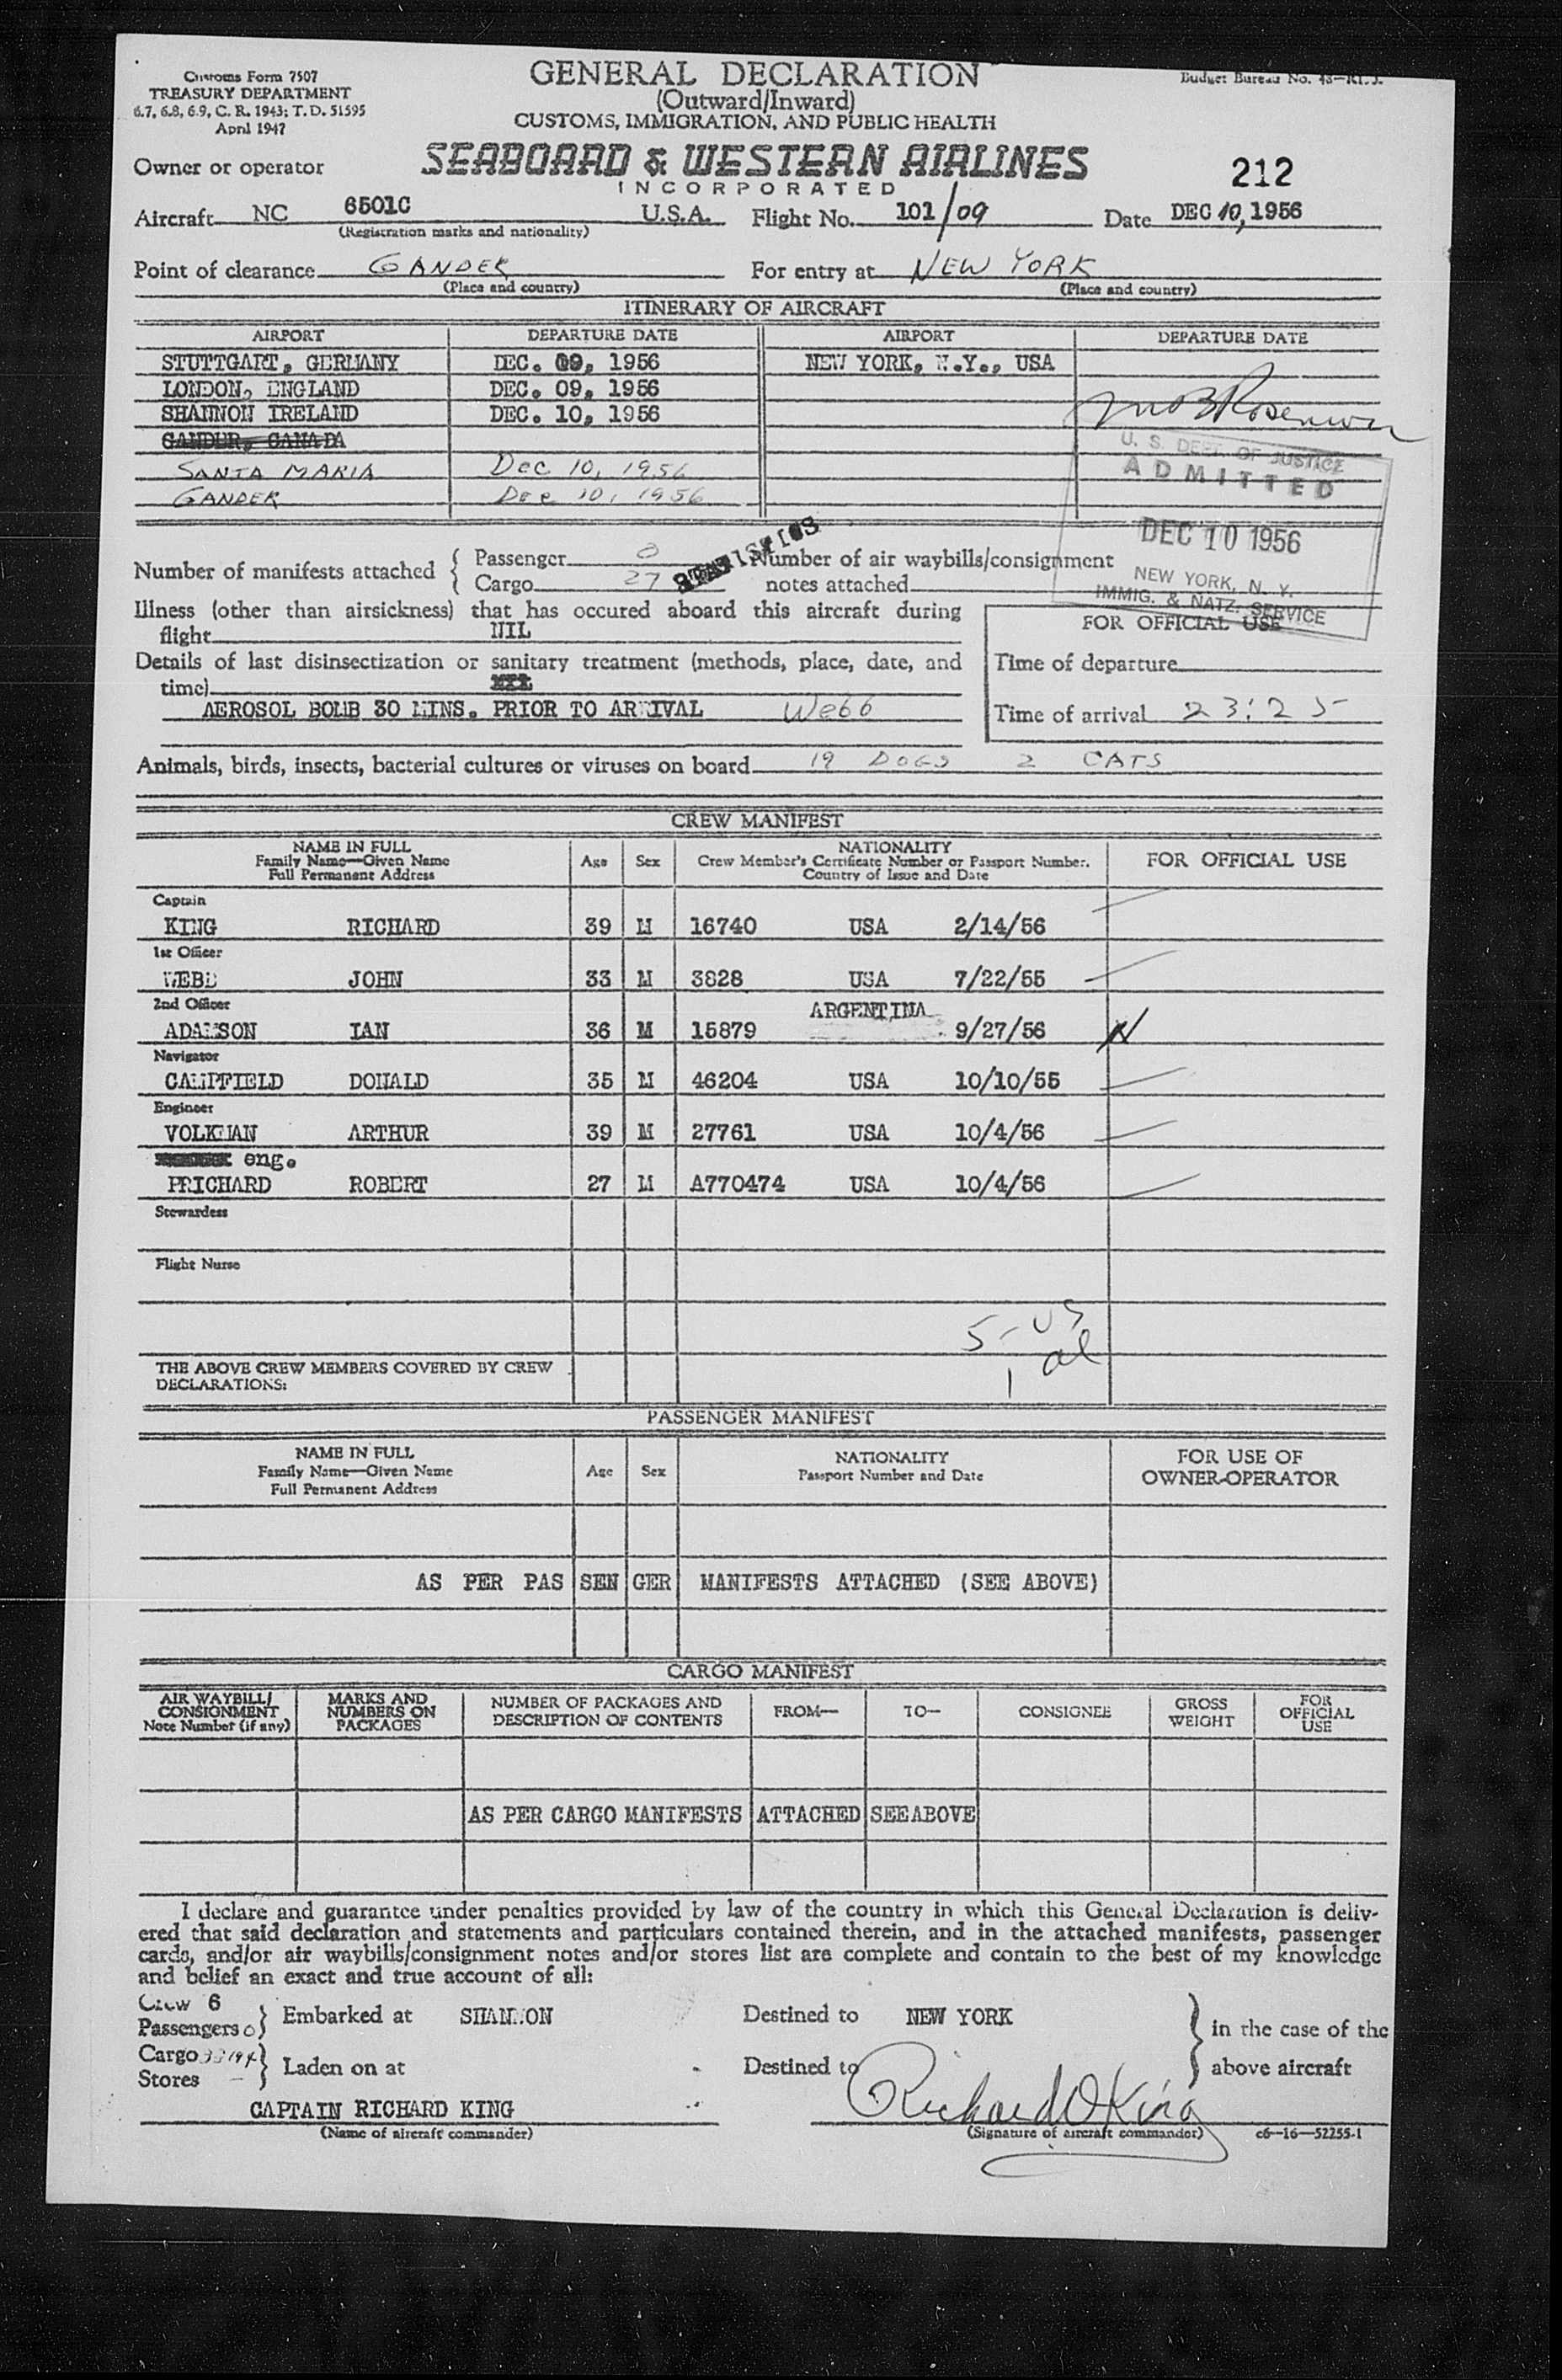 Customs Form 7507
TREASURY DEPARTMENT
6.7, 6.8, 6.9, C. R. 1943; T. D. 51595
April 1947
GENERAL DECLARATION
(Outward/Inward)
CUSTOMS, IMMIGRATION, AND PUBLIC HEALTH
Budget Bureau No.
Owner or operator SEABOARD & WESTERN AIRLINES
INCORPORATED
212
Aircraft NC 6501C U.S.A. Flight No. 101/09 Date DEC 10, 1956
(Registration marks and nationality)
Point of clearance GANDER For entry at NEW YORK
(Place and country) (Place and country)
ITINERARY OF AIRCRAFT
AIRPORT DEPARTURE DATE AIRPORT DEPARTURE DATE
STUTTGART, GERMANY DEC. 09, 1956 NEW YORK, N.Y., USA
LONDON, ENGLAND DEC. 09, 1956
SHANNON IRELAND DEC. 10, 1956
GANDER, CANADA
SANTA MARIA Dec 10, 1956
GANDER Dec 10, 1956
U. S. DEPT. OF JUSTICE
ADMITTED
DEC 10 1956
NEW YORK, N. Y.
IMMIG. & NATZ. SERVICE
Number of manifests attached { Passenger 0 Number of air waybills/consignment
Cargo 27 notes attached
STATISTICS
Illness (other than airsickness) that has occured aboard this aircraft during
flight NIL
FOR OFFICIAL USE
Details of last disinsectization or sanitary treatment (methods, place, date, and
time)
Time of departure
AEROSOL BOMB 30 MINS. PRIOR TO ARRIVAL Webb
Time of arrival 23:25
Animals, birds, insects, bacterial cultures or viruses on board 19 DOGS 2 CATS
CREW MANIFEST
NAME IN FULL
Family Name—Given Name
Full Permanent Address
Age Sex
NATIONALITY
Crew Member's Certificate Number or Passport Number.
Country of Issue and Date
FOR OFFICIAL USE
Captain
KING RICHARD 39 M 16740 USA 2/14/56
1st Officer
WEBB JOHN 33 M 3828 USA 7/22/55
2nd Officer
ADAMSON IAN 36 M 15879 ARGENTINA 9/27/56
Navigator
CAMPFIELD DONALD 35 M 46204 USA 10/10/55
Engineer
VOLKMAN ARTHUR 39 M 27761 USA 10/4/56
eng.
PRICHARD ROBERT 27 M A770474 USA 10/4/56
Stewardess
Flight Nurse
5- US
1 al
THE ABOVE CREW MEMBERS COVERED BY CREW
DECLARATIONS:
PASSENGER MANIFEST
NAME IN FULL
Family Name—Given Name
Full Permanent Address
Age Sex
NATIONALITY
Passport Number and Date
FOR USE OF
OWNER-OPERATOR
AS PER PAS SEN GER MANIFESTS ATTACHED (SEE ABOVE)
CARGO MANIFEST
AIR WAYBILL/
CONSIGNMENT
Note Number (if any)
MARKS AND
NUMBERS ON
PACKAGES
NUMBER OF PACKAGES AND
DESCRIPTION OF CONTENTS
FROM— TO— CONSIGNEE
GROSS
WEIGHT
FOR
OFFICIAL
USE
AS PER CARGO MANIFESTS ATTACHED SEE ABOVE
I declare and guarantee under penalties provided by law of the country in which this General Declaration is deliv-
ered that said declaration and statements and particulars contained therein, and in the attached manifests, passenger
cards, and/or air waybills/consignment notes and/or stores list are complete and contain to the best of my knowledge
and belief an exact and true account of all:
Crew 6
Passengers 0 } Embarked at SHANNON Destined to NEW YORK } in the case of the
Cargo
Stores – } Laden on at Destined to above aircraft
CAPTAIN RICHARD KING Richard O King
(Name of aircraft commander) (Signature of aircraft commander) c6—16—52255-1